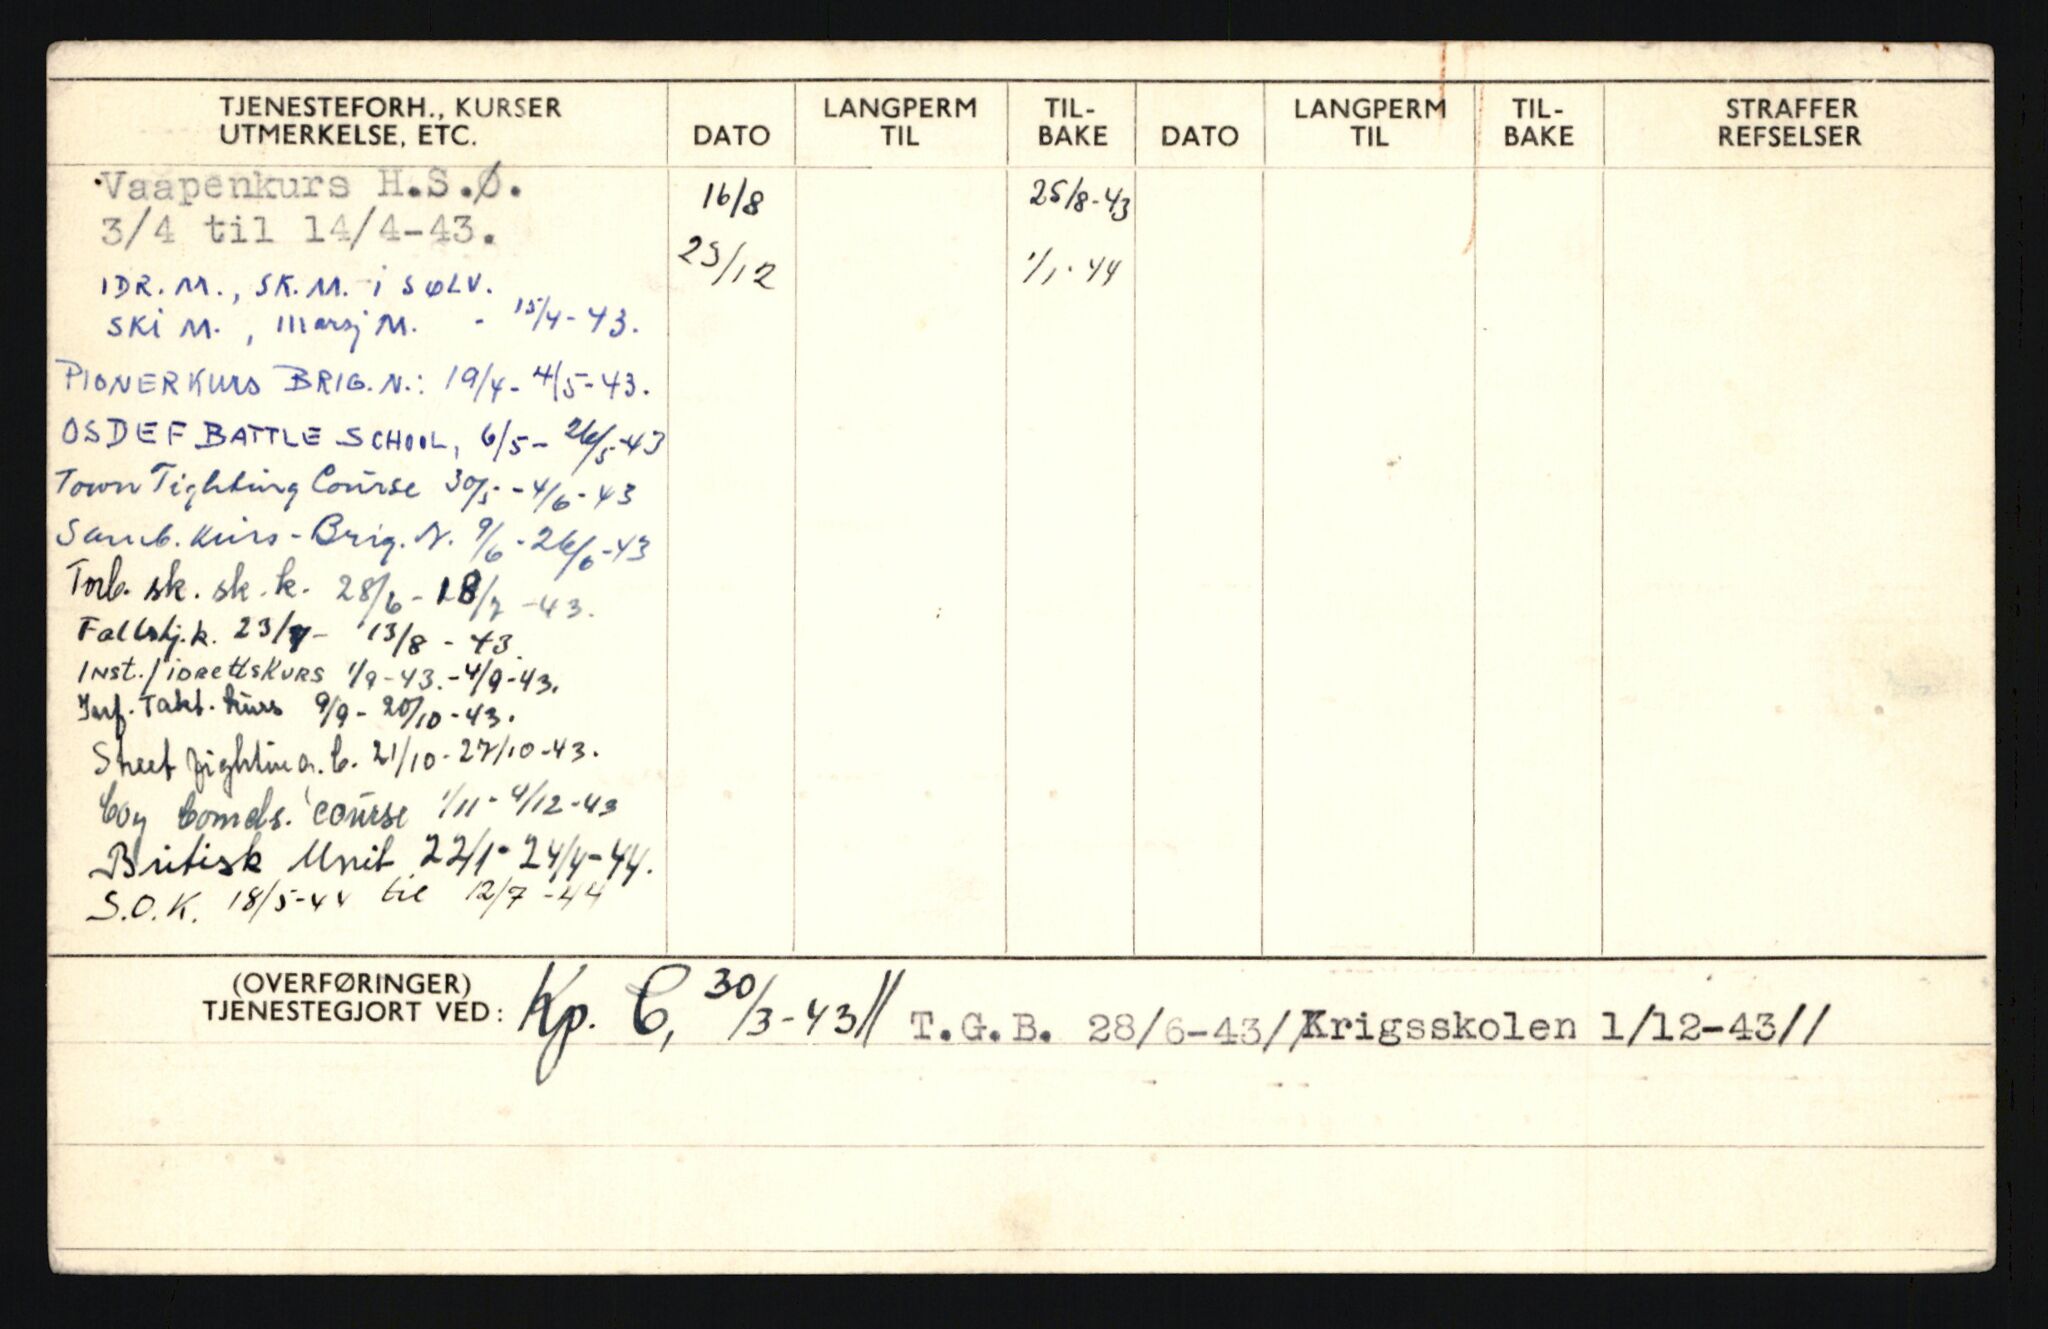 TJENESTEFORH., KURSER
UTMERKELSE, ETC.
DATO
LANGPERM
TIL
TIL-
BAKE
DATO
LANGPERM
TIL
TIL-
BAKE
STRAFFER
REFSELSER
Vaapenkurs H.S.Ø.
3/4 til 14/4-43.
16/8 25/8-43
25/12 1/1-44
IDR. M., SK. M. i SØLV.
SKI M., Marsj M. - 15/4-43.
PIONERKURS BRIG. N.: 19/4- 4/5-43.
OSDEF BATTLE SCHOOL, 6/5- 26/5-43
Town Fighting Course 30/5-4/6-43
Samb. kurs - Brig. N. 9/6-26/6-43
Torb. sk. sk. k. 28/6-18/7-43.
Fallskj.k. 23/7- 13/8-43.
Inst./idrettskurs 1/9-43.-4/9-43.
Inf. Takt. kurs 9/9-20/10-43.
Street fighting. C. 21/10-27/10-43.
Coy Comds. course 1/11-4/12-43
Britisk Unit 22/1-24/4-44.
S.O.K. 18/5-44 til 12/7-44
(OVERFØRINGER)
TJENESTEGJORT VED: Kp. C, 30/3-43// T.G.B. 28/6-43//Krigsskolen 1/12-43//